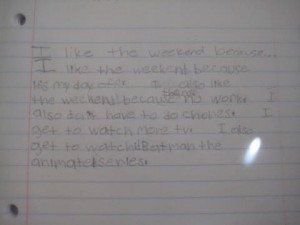 I like the weekend because...
I like the weekend because
its my day off. I also like
the weekend because theres no work. I
also don't have to do chores. I
get to watch more tv. I also
get to watch Batman the
animated series.